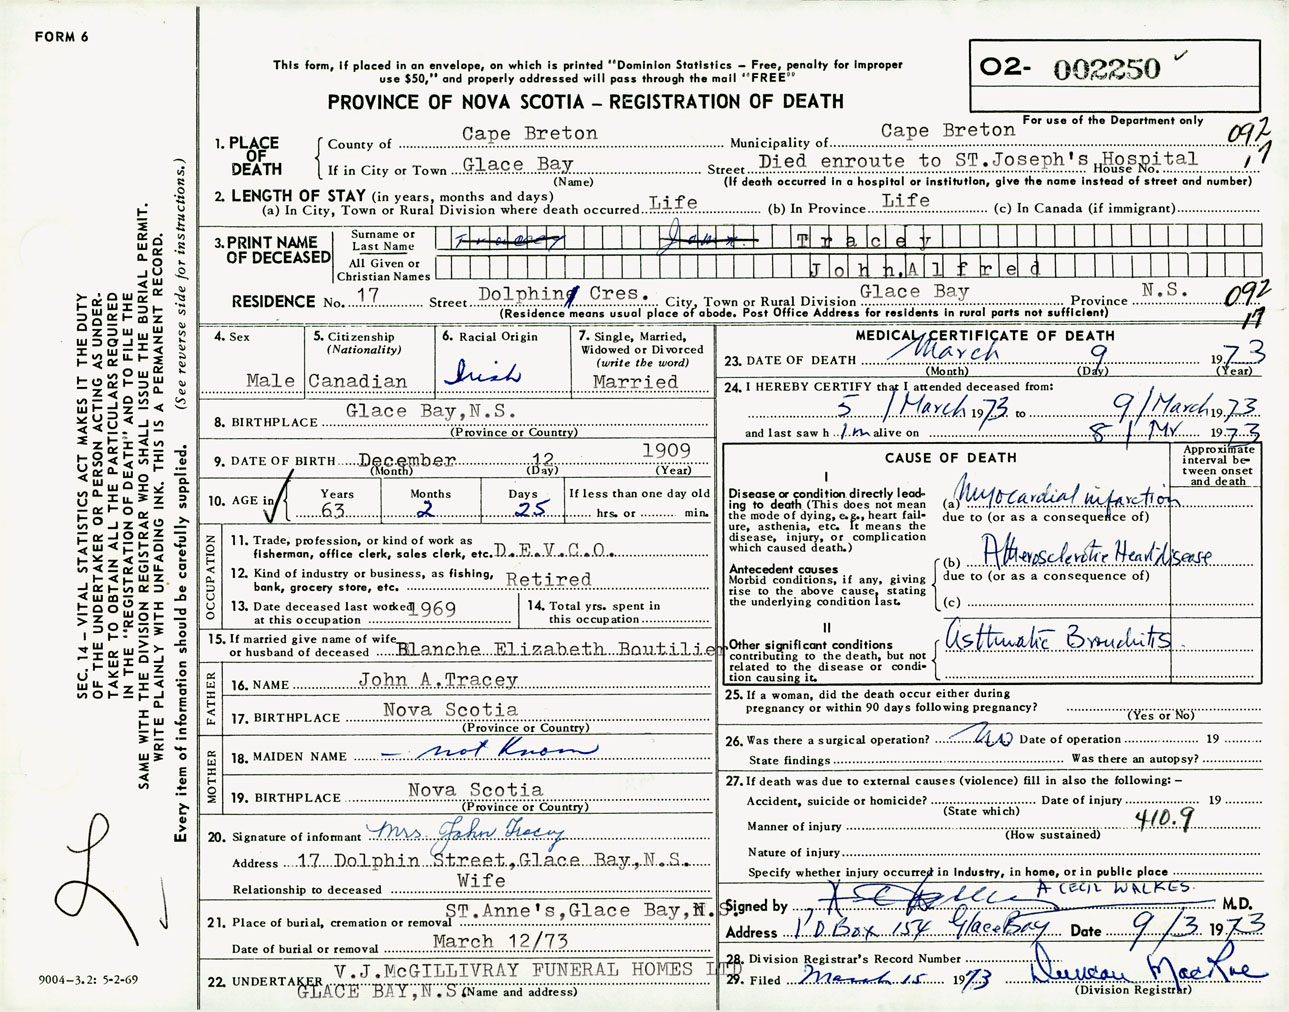 FORM 6
This form, if placed in an envelope, on which is printed "Dominion Statistics – Free, penalty for improper
use $50," and properly addressed will pass through the mail "FREE"
PROVINCE OF NOVA SCOTIA – REGISTRATION OF DEATH
O2- 002250 ✓
For use of the Department only
092
17
1. PLACE OF DEATH
County of Cape Breton Municipality of Cape Breton
If in City or Town Glace Bay Street Died enroute to ST.Joseph's Hospital House No.
(Name) (If death occurred in a hospital or institution, give the name instead of street and number)
2. LENGTH OF STAY (in years, months and days)
(a) In City, Town or Rural Division where death occurred Life (b) In Province Life (c) In Canada (if immigrant)
3. PRINT NAME OF DECEASED
Surname or Last Name Tracey John Tracey
All Given or Christian Names John.Alfred
RESIDENCE No. 17 Street Dolphin Cres. City, Town or Rural Division Glace Bay Province N.S. 092
(Residence means usual place of abode. Post Office Address for residents in rural parts not sufficient) 17
4. Sex Male
5. Citizenship (Nationality) Canadian
6. Racial Origin Irish
7. Single, Married, Widowed or Divorced (write the word) Married
8. BIRTHPLACE Glace Bay,N.S.
(Province or Country)
9. DATE OF BIRTH December 12 1909
(Month) (Day) (Year)
10. AGE in Years 63 Months 2 Days 25 If less than one day old
hrs. or min.
OCCUPATION
11. Trade, profession, or kind of work as
fisherman, office clerk, sales clerk, etc. D.E.V.C.O.
12. Kind of industry or business, as fishing,
bank, grocery store, etc. Retired
13. Date deceased last worked
at this occupation 1969
14. Total yrs. spent in
this occupation
15. If married give name of wife
or husband of deceased Blanche Elizabeth Boutilier
FATHER
16. NAME John A.Tracey
17. BIRTHPLACE Nova Scotia
(Province or Country)
MOTHER
18. MAIDEN NAME – not Known
19. BIRTHPLACE Nova Scotia
(Province or Country)
20. Signature of informant Mrs John Tracey
Address 17 Dolphin Street,Glace Bay,N.S.
Relationship to deceased Wife
21. Place of burial, cremation or removal ST.Anne's,Glace Bay,N.S.
Date of burial or removal March 12/73
22. UNDERTAKER V.J.McGILLIVRAY FUNERAL HOMES LTD
GLACE BAY,N.S. (Name and address)
MEDICAL CERTIFICATE OF DEATH
23. DATE OF DEATH March 9 1973
(Month) (Day) (Year)
24. I HEREBY CERTIFY that I attended deceased from:
5 / March 1973 to 9/March 1973
and last saw him alive on 8 / Mr 1973
CAUSE OF DEATH
Approximate interval between onset and death
I
Disease or condition directly leading to death (This does not
mean the mode of dying, e.g., heart failure, asthenia, etc. It means the
disease, injury, or complication
which caused death.)
(a) Myocardial infarction
due to (or as a consequence of)
Antecedent causes
Morbid conditions, if any, giving
rise to the above cause, stating
the underlying condition last.
(b) Atherosclerotic Heart disease
due to (or as a consequence of)
(c)
II
Other significant conditions
contributing to the death, but not
related to the disease or condition
causing it.
Asthmatic Bronchitis
25. If a woman, did the death occur either during
pregnancy or within 90 days following pregnancy?
(Yes or No)
26. Was there a surgical operation? No Date of operation 19
State findings Was there an autopsy?
27. If death was due to external causes (violence) fill in also the following: –
Accident, suicide or homicide? Date of injury 19
(State which)
Manner of injury 410.9
(How sustained)
Nature of injury
Specify whether injury occurred in Industry, in home, or in public place
Signed by A CECIL WALKES. M.D.
Address P O Box 154 Glace Bay Date 9/3 1973
28. Division Registrar's Record Number
29. Filed March 15 1973 Duncan MacRae
(Division Registrar)
SEC. 14 – VITAL STATISTICS ACT MAKES IT THE DUTY
OF THE UNDERTAKER OR PERSON ACTING AS UNDER-
TAKER TO OBTAIN ALL THE PARTICULARS REQUIRED
IN THE "REGISTRATION OF DEATH" AND TO FILE THE
SAME WITH THE DIVISION REGISTRAR WHO SHALL ISSUE THE BURIAL PERMIT.
WRITE PLAINLY WITH UNFADING INK. THIS IS A PERMANENT RECORD.
Every item of information should be carefully supplied. (See reverse side for instructions.)
9004–3.2: 5-2-69